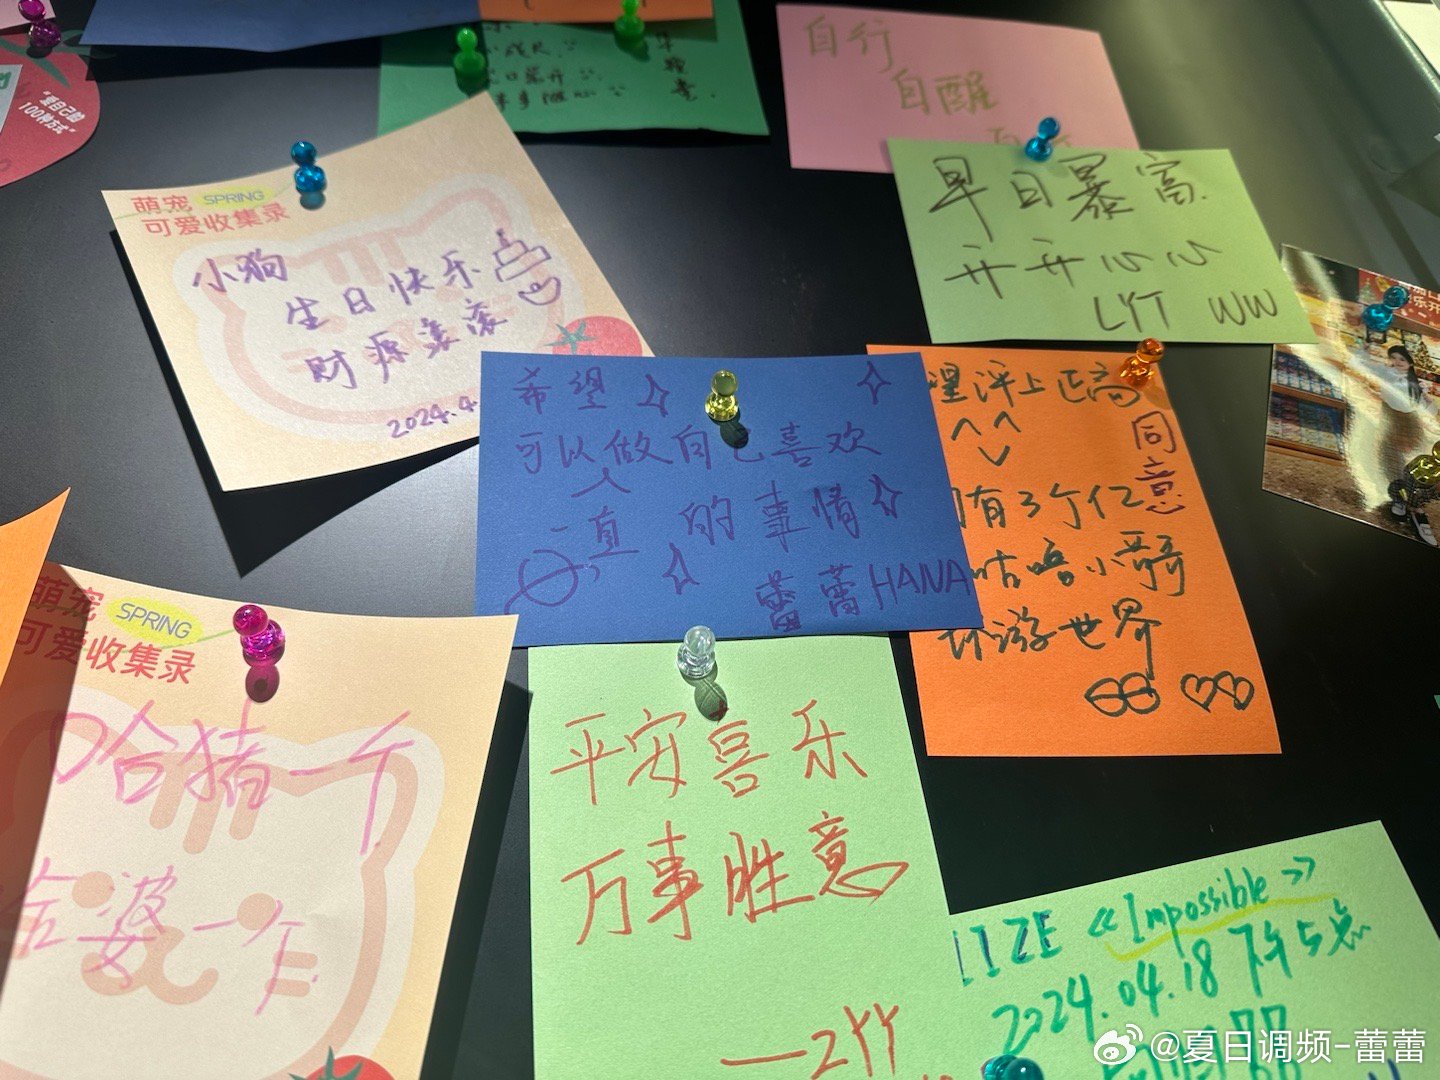 "爱自己的
100种方式"
口常开
事事随心
自行
自醒
萌宠 SPRING
可爱收集录
小狗
生日快乐
财源滚滚
2024.4
早日暴富
开开心心
LYT WW
希望
可以做自己喜欢
一直 的事情
蕾蕾HANA
望评上正高
同意
有3个亿
咕噜小哥哥
环游世界
萌宠 SPRING
可爱收集录
哈猪一个
婆一个
平安喜乐
万事胜意
—ZYY
IIZE 《Impossible》
2024.04.18 下午5点
@夏日调频-蕾蕾